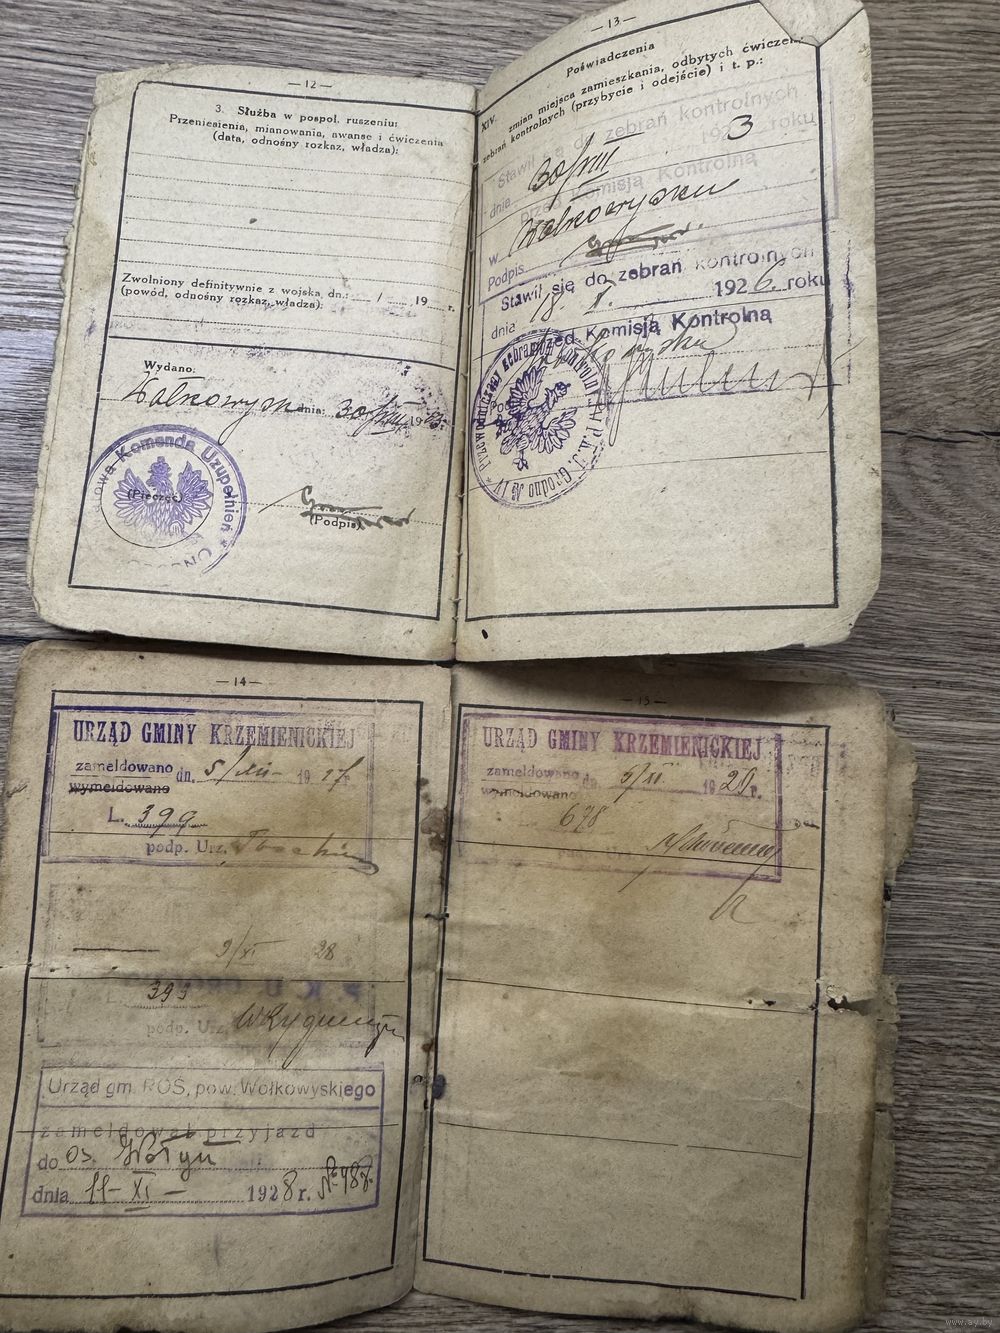 — 12 —
3. Służba w pospol. ruszeniu:
Przeniesienia, mianowania, awanse i ćwiczenia
(data, odnośny rozkaz, władza):
Zwolniony definitywnie z wojska dn.: / 19 r.
(powód, odnośny rozkaz, władza):
Wydano:
Wołkowysk dnia 30/VIII 1923
owa Komenda Uzupełnień
(Pieczęć)
(Podpis)
— 13 —
XIV. Poświadczenia
zmian miejsca zamieszkania, odbytych ćwiczeń,
zebrań kontrolnych (przybycie i odejście) i t. p.:
Stawił się do zebrań kontrolnych
dnia 30/VIII 1923 roku
przed Komisją Kontrolną
w Wołkowysku
Podpis
Stawił się do zebrań kontrolnych
dnia 18. 1926. roku
przed Komisją Kontrolną
Przewodniczący Zebrań Kontrolnych P.K.U. Grodno № IV
— 14 —
URZĄD GMINY KRZEMIENICKIEJ
zameldowano
wymeldowano
dn. 5/XII 1927
L. 399
podp. Urz.
9/XI 28
L. 393
podp. Urz.
Urząd gm. ROŚ, pow. Wołkowyskiego
zameldował przyjazd
do os. Wołyń
dnia 11-XI- 1928 r. №
— 15 —
URZĄD GMINY KRZEMIENICKIEJ
zameldowano
wymeldowano
dn. 1929 r.
678
www.ay.by